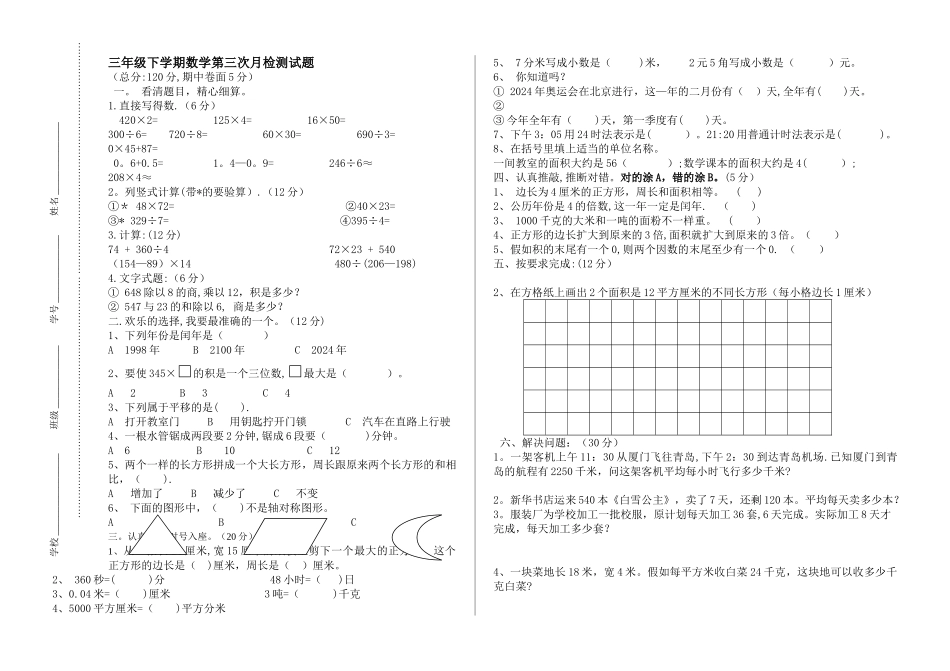 三年级下学期数学第三次月检测试题
(总分:120分,期中卷面5分)
一。 看清题目，精心细算。
1.直接写得数.(6分)
420×2= 125×4= 16×50=
300÷6= 720÷8= 60×30= 690÷3=
0×45+87=
0。6+0.5= 1。4—0。9= 246÷6≈
208×4≈
2。列竖式计算(带*的要验算).(12分)
①* 48×72= ②20×23=
③* 329÷7= ④395÷4=
3.计算:(12分)
74 + 360÷4 72×23 + 540
(154—89)×14 480÷(206—198)
4.文字式题:(6分)
① 648除以8的商,乘以12，积是多少？
② 547与23的和除以6, 商是多少？
二.欢乐的选择,我要最准确的一个。(12分)
1、下列年份是闰年是（ ）
A 1998年 B 2100年 C 2024年
2、要使345×□的积是一个三位数,□最大是（ ）。
A 2 B 3 C 4
3、下列属于平移的是( ).
A 打开教室门 B 用钥匙拧开门锁 C 汽车在直路上行驶
4、一根水管锯成两段要2分钟,锯成6段要（ )分钟。
A 6 B 10 C 12
5、两个一样的长方形拼成一个大长方形，周长跟原来两个长方形的和相
比，（ ).
A 增加了 B 减少了 C 不变
6、 下面的图形中，（ )不是轴对称图形。
A B C
三。认 号入座。(20分)
1、从 厘米,宽15厘 剪下一个最大的正方 这个
正方形的边长是（ )厘米，周长是（ ）厘米。
2、 360秒=( )分 48小时=( )日
3、0.04米=( )厘米 3吨=( )千克
4、5000平方厘米=（ )平方分米
5、 7分米写成小数是（ )米， 2元5角写成小数是（ ）元。
6、 你知道吗？
① 2024年奥运会在北京进行，这—年的二月份有（ ）天,全年有( )天。
②
③今年全年有（ )天，第一季度有( )天。
7、下午3：05用24时法表示是( )。21:20用普通计时法表示是( )。
8、在括号里填上适当的单位名称。
一间教室的面积大约是56（ );数学课本的面积大约是4( );
四、认真推敲,推断对错。对的涂A，错的涂B。(5分)
1、 边长为4厘米的正方形，周长和面积相等。 ( )
2、公历年份是4的倍数,这一年一定是闰年. （ ）
3、 1000千克的大米和一吨的面粉不一样重。 ( )
4、正方形的边长扩大到原来的3倍,面积就扩大到原来的3倍。（ ）
5、假如积的末尾有一个0,则两个因数的末尾至少有一个0. （ ）
五、按要求完成:(12分)
2、在方格纸上画出2个面积是12平方厘米的不同长方形（每小格边长1厘米）
六、解决问题：（30分）
1。一架客机上午11；30从厦门飞往青岛,下午2；30到达青岛机场.已知厦门到青
岛的航程有2250千米，问这架客机平均每小时飞行多少千米？
2。新华书店运来540本《白雪公主》，卖了7天，还剩120本。平均每天卖多少本?
3。服装厂为学校加工一批校服，原计划每天加工36套,6天完成。实际加工8天才
完成，每天加工多少套？
4、一块菜地长18米，宽4米。假如每平方米收白菜24千克，这块地可以收多少千
克白菜？
姓名
学号
班级
学校